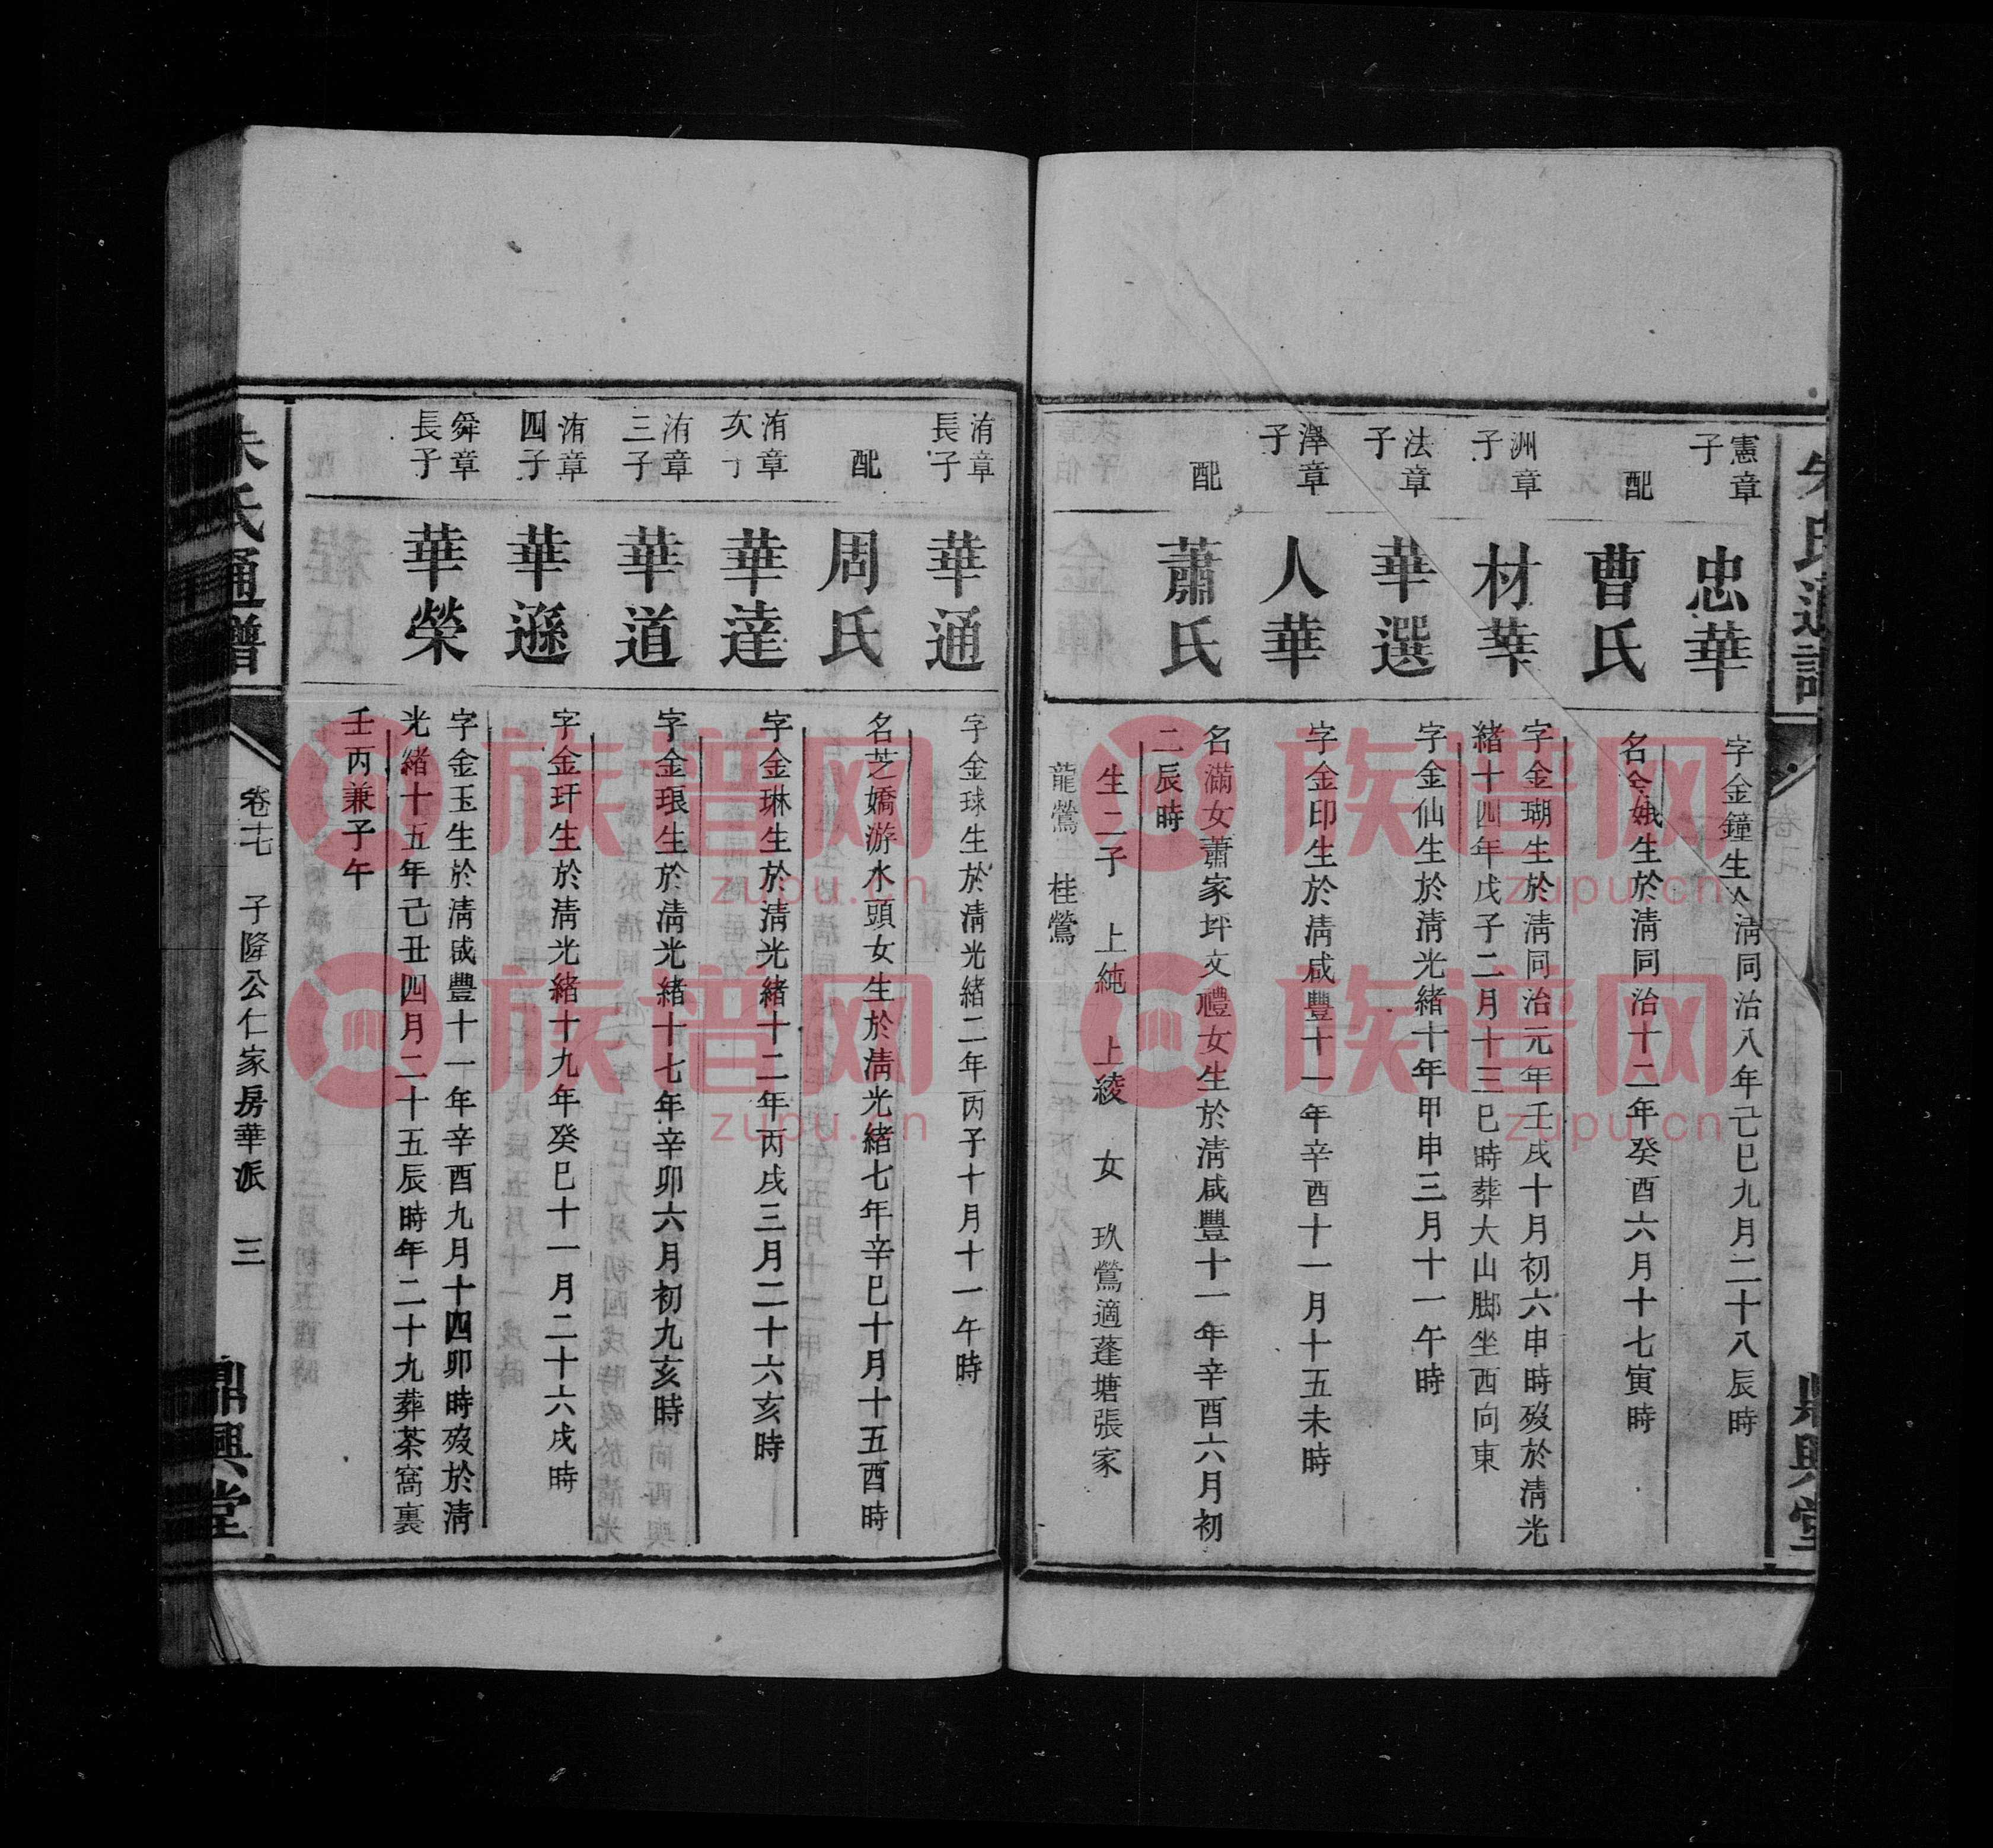 朱氏通譜
鼎興堂
憲章
子
忠華
字金鐘生於清同治八年己巳九月二十八辰時
配
曹氏
名金娥生於清同治十二年癸酉六月十七寅時
洲章
子
材華
字金瑚生於清同治元年壬戌十月初六申時歿於清光
緒十四年戊子二月十三巳時葬大山脚坐西向東
法章
子
華選
字金仙生於清光緒十年甲申三月十一午時
澤章
子
人華
字金印生於清咸豐十一年辛酉十一月十五未時
配
蕭氏
名滿女蕭家坪文禮女生於清咸豐十一年辛酉六月初
二辰時
生二子 上純 上綾 女 玖鶯適蓬塘張家
龍鶯 桂鶯
洧章
長子
華通
字金球生於清光緒二年丙子十月十一午時
配
周氏
名芝嬌游水頭女生於清光緒七年辛巳十月十五酉時
洧章
次子
華達
字金琳生於清光緒十二年丙戌三月二十六亥時
洧章
三子
華道
字金琅生於清光緒十七年辛卯六月初九亥時
洧章
四子
華遜
字金玕生於清光緒十九年癸巳十一月二十六戌時
舜章
長子
華榮
字金玉生於清咸豐十一年辛酉九月十四卯時歿於清
光緒十五年己丑四月二十五辰時年二十九葬茶窩裏
壬丙兼子午
朱氏通譜
卷七 子隆公仁家房華派 三
鼎興堂
族谱网
zupu.cn
族谱网
zupu.cn
族谱网
zupu.cn
族谱网
zupu.cn